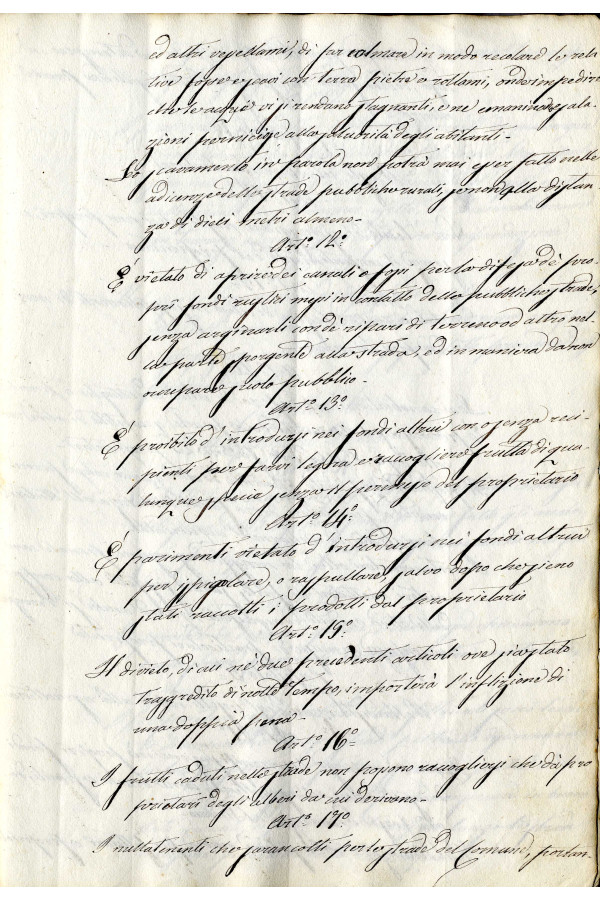 ed altri vegellami, di far colmare in modo regolare le rela-
tive fosse e scavi con terra pietre o rottami, onde impedire
che le acque vi si rendano stagnanti, e ne emanino esala-
zioni perniciose alla salubrità degli abitanti.
Lo scavamento in parola non potrà mai esser fatto nelle
adiacenze delle strade pubbliche rurali, se non alla distan-
za di dieci metri almeno.
Art.° 12.°
É vietato di aprire dei canali o fossi per la difesa de' pro-
prî fondi rustici messi in contatto delle pubbliche strade,
senza arginarli con de' ripari di terreno od altro nel-
la parte sporgente alla strada, ed in maniera da non
occupare suolo pubblico.
Art.° 13.°
É proibito d'introdursi nei fondi altrui con o senza reci-
pienti per farvi legna e raccogliere frutta di qua-
lunque specie senza il permesso del proprietario
Art.° 14.°
É parimenti vietato d'introdursi nei fondi altrui
per spigolare, o raspullare, salvo dopo che sieno
stati raccolti i prodotti dal proprietario
Art.° 15.°
Il divieto, di cui ne' due precedenti articoli ove sia stato
trasgredito di notte tempo, importerà l'inflizione di
una doppia pena.
Art.° 16.°
I frutti caduti nelle strade non possono raccogliersi che dà pro
prietari degli alberi da cui derivano.
Art.° 17.°
I nullatenenti che saran colti per le strade del Comune, portan-